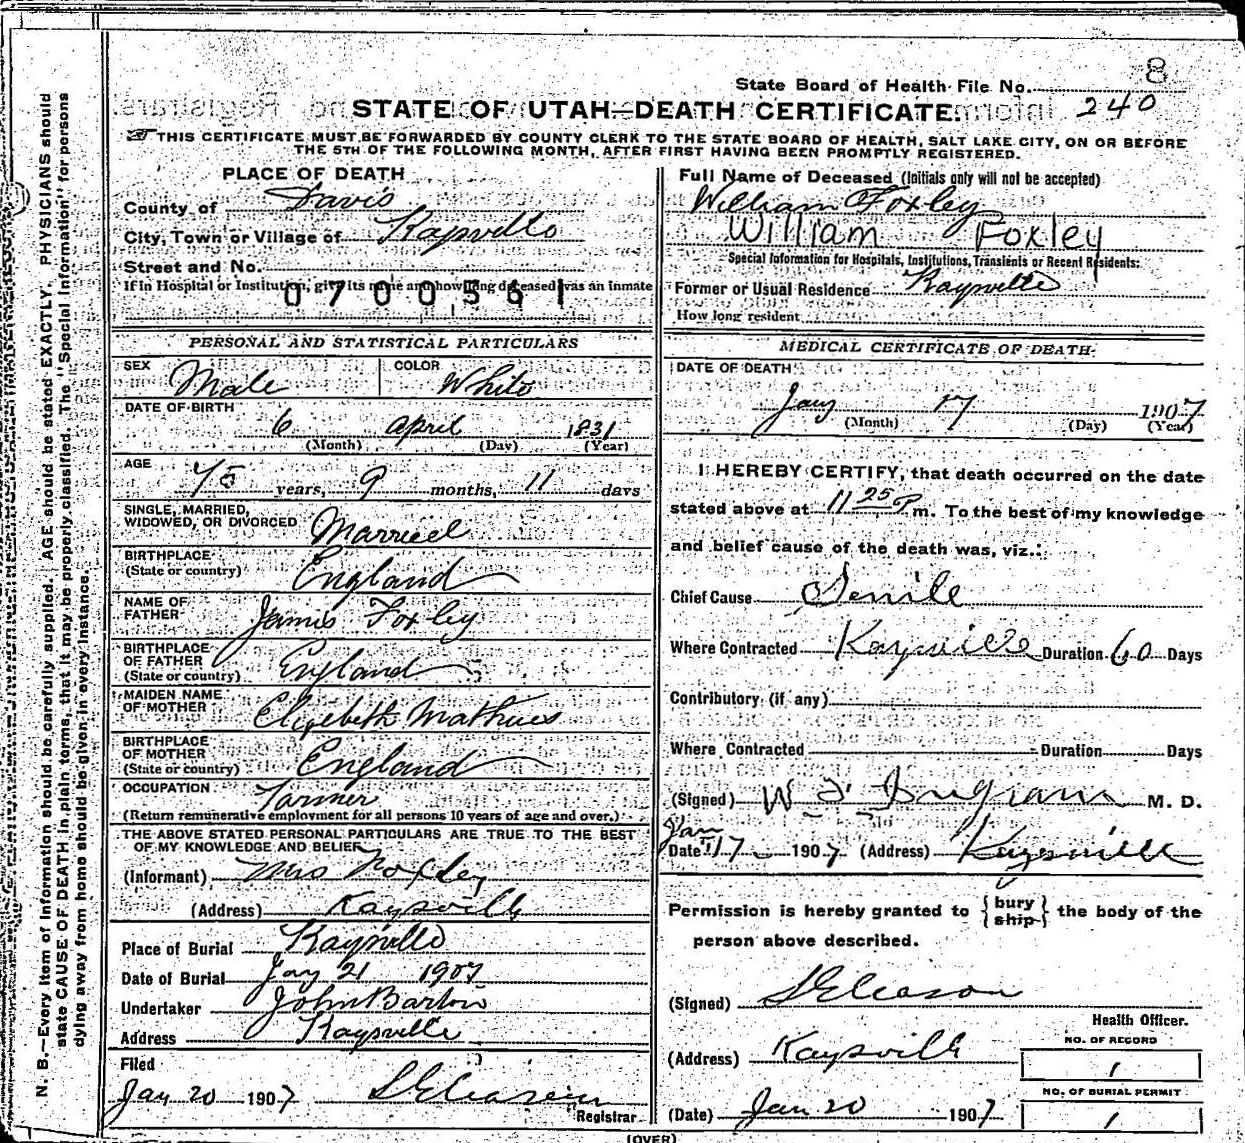 8
State Board of Health File No. 240
STATE OF UTAH—DEATH CERTIFICATE.
THIS CERTIFICATE MUST BE FORWARDED BY COUNTY CLERK TO THE STATE BOARD OF HEALTH, SALT LAKE CITY, ON OR BEFORE
THE 5TH OF THE FOLLOWING MONTH, AFTER FIRST HAVING BEEN PROMPTLY REGISTERED.
N. B.—Every item of information should be carefully supplied. AGE should be stated EXACTLY. PHYSICIANS should
state CAUSE OF DEATH in plain terms, that it may be properly classified. The "Special Information" for persons
dying away from home should be given in every instance.
PLACE OF DEATH
County of Davis
City, Town or Village of Kaysville
Street and No.
If in Hospital or Institution, give its name and how long deceased was an inmate
0700561
PERSONAL AND STATISTICAL PARTICULARS
SEX Male COLOR White
DATE OF BIRTH
6 April 1831
(Month) (Day) (Year)
AGE
75 years, 9 months, 11 days
SINGLE, MARRIED,
WIDOWED, OR DIVORCED Married
BIRTHPLACE
(State or country) England
NAME OF
FATHER James Foxley
BIRTHPLACE
OF FATHER
(State or country) England
MAIDEN NAME
OF MOTHER Elizebeth Mathues
BIRTHPLACE
OF MOTHER
(State or country) England
OCCUPATION Farmer
(Return remunerative employment for all persons 10 years of age and over.)
THE ABOVE STATED PERSONAL PARTICULARS ARE TRUE TO THE BEST
OF MY KNOWLEDGE AND BELIEF
(Informant) Mrs Foxley
(Address) Kaysville
Place of Burial Kaysville
Date of Burial Jay 21 1907
Undertaker John Barton
Address Kaysville
Filed
Jay 20 1907
Registrar
Full Name of Deceased (Initials only will not be accepted)
William Foxley
William Foxley
Special Information for Hospitals, Institutions, Transients or Recent Residents:
Former or Usual Residence Kaysville
How long resident
MEDICAL CERTIFICATE OF DEATH
DATE OF DEATH
Jay 17 1907
(Month) (Day) (Year)
I HEREBY CERTIFY, that death occurred on the date
stated above at 11 25 P m. To the best of my knowledge
and belief cause of the death was, viz.:
Chief Cause Senile
Where Contracted Kaysville Duration 60 Days
Contributory (if any)
Where Contracted Duration Days
(Signed) W Ingram M. D.
Jan
Date 17 1907 (Address) Kaysville
Permission is hereby granted to {bury
ship} the body of the
person above described.
(Signed)
Health Officer.
(Address) Kaysville
NO. OF RECORD
1
NO. OF BURIAL PERMIT
1
(Date) Jan 20 1907
(OVER)